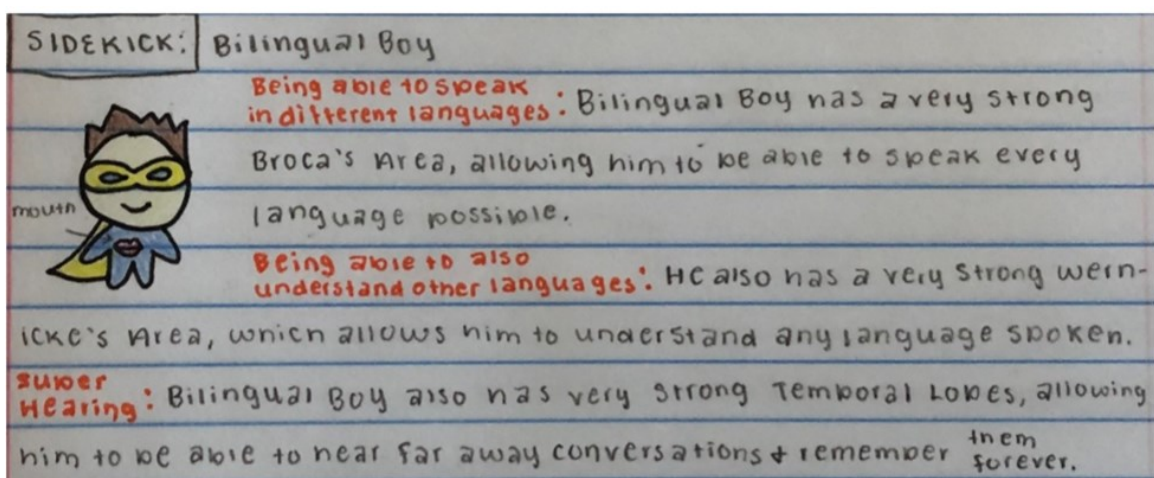 SIDEKICK: Bilingual Boy
Being able to speak
in different languages: Bilingual Boy has a very strong
Broca's Area, allowing him to be able to speak every
mouth
language possible.
Being able to also
understand other languages: He also has a very strong wern-
icke's Area, which allows him to understand any language spoken.
super
Hearing: Bilingual Boy also has very strong Temporal Lobes, allowing
him to be able to hear far away conversations & remember them
forever.